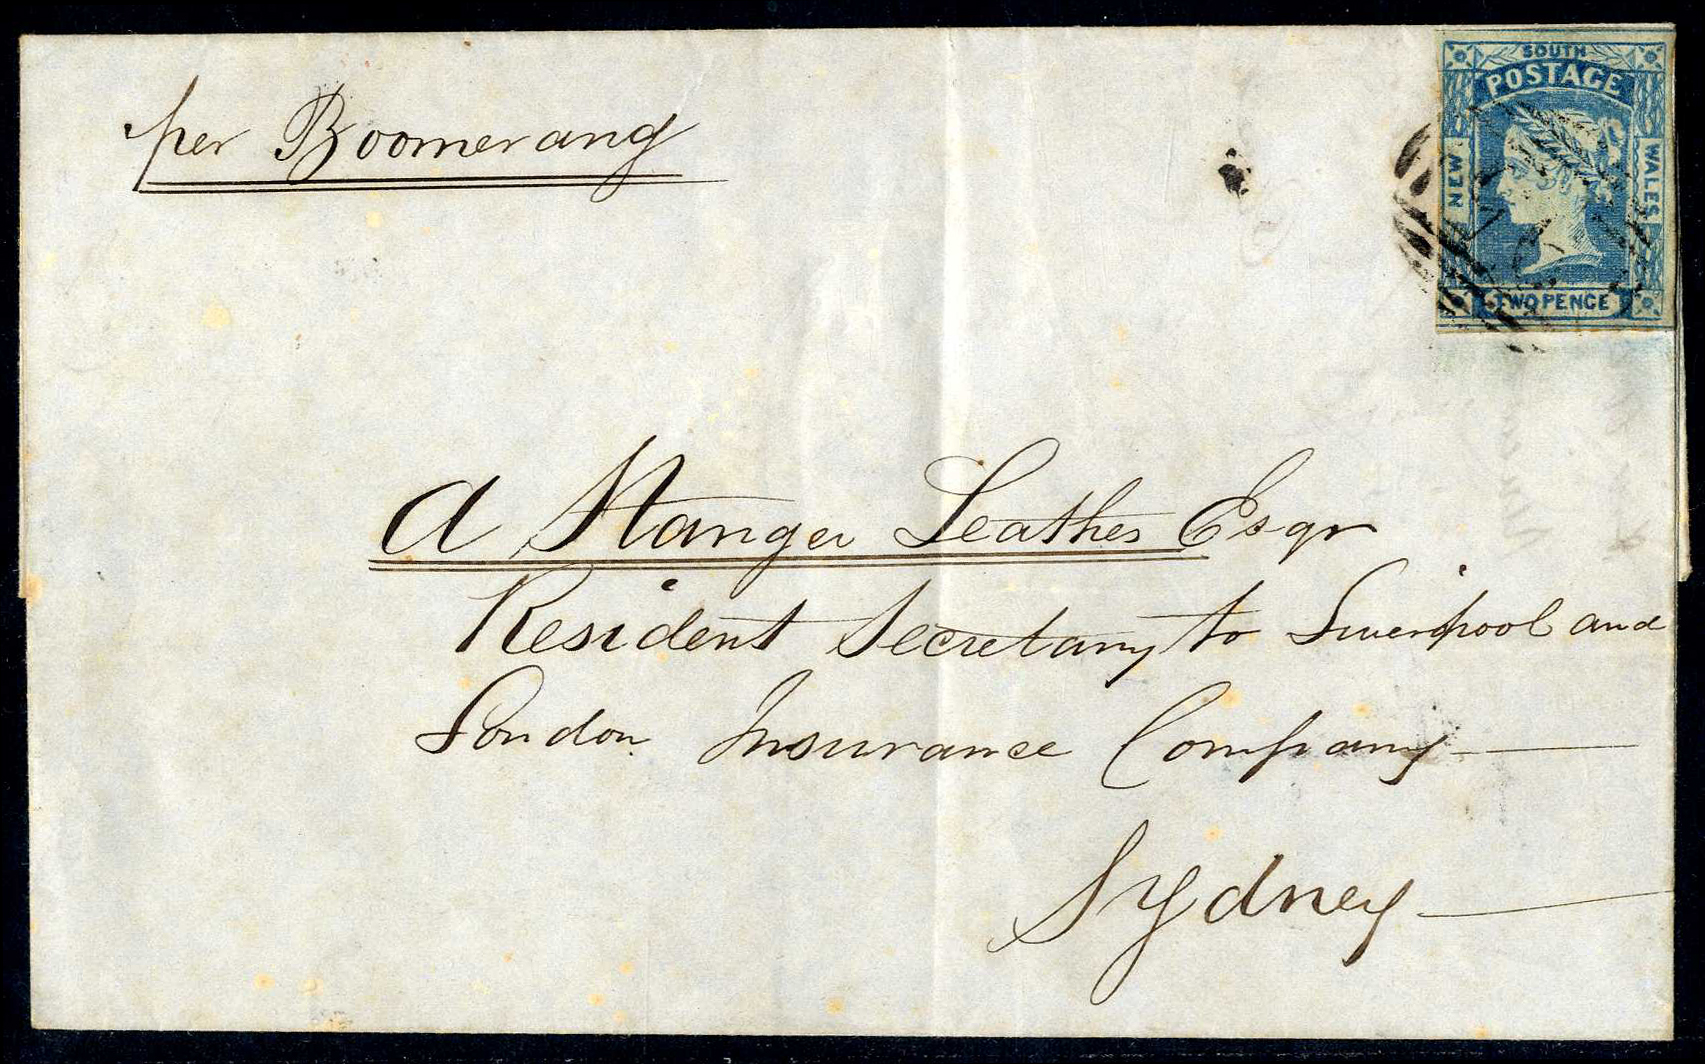 per Boomerang
SOUTH
POSTAGE
NEW
WALES
TWO PENCE
A Stanger Leathes Esqr
Resident Secretary to Liverpool and
London Insurance Company
Sydney